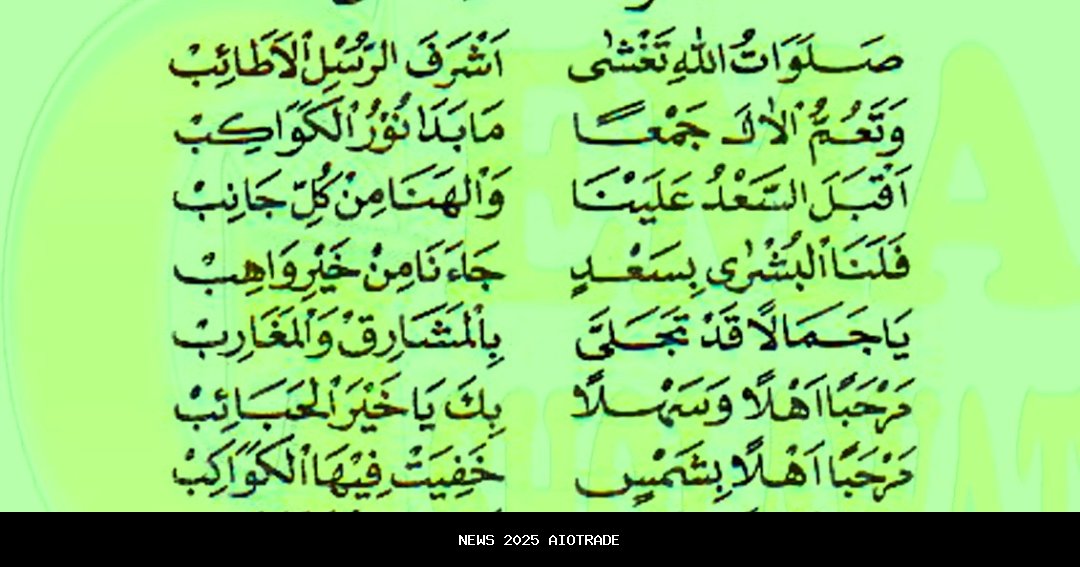 صَلَوَاتُ اللّٰهِ تَغْشٰى اَشْرَفَ الرُّسُلِ الْاَطَائِبْ
وَتَعُمُّ الْاٰلَ جَمْعًا مَا بَدَا نُوْرُ الْكَوَاكِبْ
اَقْبَلَ السَّعْدُ عَلَيْنَا وَالْهَنَا مِنْ كُلِّ جَانِبْ
فَلَنَا الْبُشْرٰى بِسَعْدٍ جَاءَنَا مِنْ خَيْرِ وَاهِبْ
يَا جَمَالًا قَدْ تَجَلَّى بِالْمَشَارِقْ وَالْمَغَارِبْ
مَرْحَبًا اَهْلًا وَسَهْلًا بِكَ يَا خَيْرَ الْحَبَائِبْ
مَرْحَبًا اَهْلًا بِشَمْسٍ خَفِيَتْ فِيْهَا الْكَوَاكِبْ
NEWS 2025 AIOTRADE